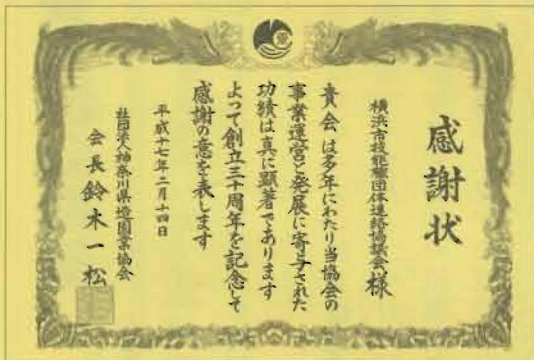 感謝状
横浜市技能職団体連絡協議会様
貴会は多年にわたり当協会の
事業運営と発展に寄与された
功績は真に顕著であります
よって創立三十周年を記念して
感謝の意を表します
平成十七年二月十四日
社団法人神奈川県造園業協会
会長鈴木一松